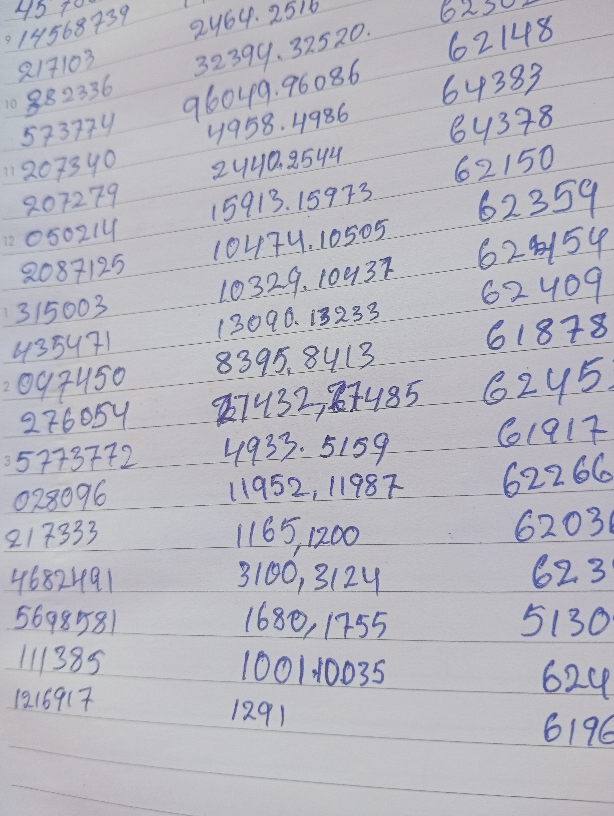 9 14568739 2464.2516
217103 32394.32520. 62148
10 882336 96049.96086 64383
573774 4958.4986 64378
11 207340 2440.2544 62150
207279 15913.15973 62359
12 050214 10474.10505 62454
2087125 10329.10437 62409
1 315003 13090.13233 61878
435471 8395,8413 6245
2 097450 27432,27485 61917
276054 4933.5159 62266
3 5773772 11952,11987 6203
028096 1165,1200 623
217333 3100,3124 5130
4682491 1680,1755 624
5698581 1001.10035 6196
111385 1291
1216917